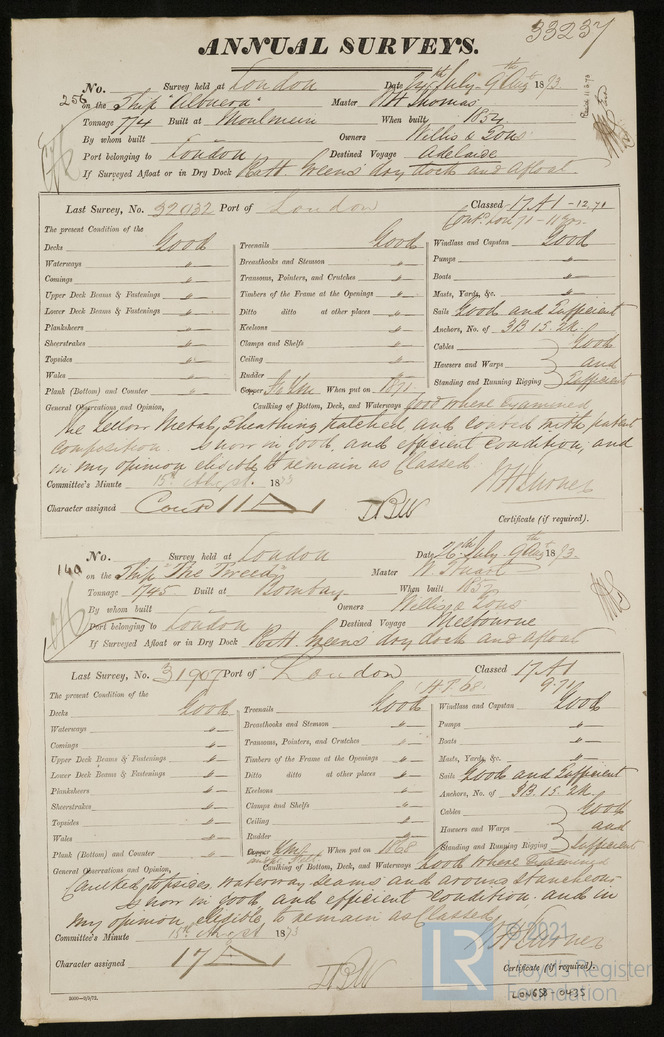 33237
ANNUAL SURVEYS.
No. 256 Survey held at London Date 24th July - 9th Augt 1873
on the Ship "Albuera" Master Thomas
Tonnage 774 Built at Moulmein When built 1854
By whom built Owners Willis & Sons
Port belonging to London Destined Voyage Adelaide
If Surveyed Afloat or in Dry Dock R & H Greens dry dock and afloat.
Last Survey, No. 32032 Port of London Classed 17 A1 - 12,71
Cont. Lon 71 - 11 yrs.
The present Condition of the
Decks Good Treenails Good Windlass and Capstan Good
Waterways " Breasthooks and Stemson " Pumps "
Comings " Transoms, Pointers, and Crutches " Boats "
Upper Deck Beams & Fastenings " Timbers of the Frame at the Openings " Masts, Yards, &c. "
Lower Deck Beams & Fastenings " Ditto ditto at other places " Sails Good and Sufficient
Planksheers " Keelsons " Anchors, No. of 3B 1S. 2K.
Sheerstrakes " Clamps and Shelfs " Cables Good
Topsides " Ceiling " Hawsers and Warps and
Wales " Rudder " Standing and Running Rigging Sufficient
Plank (Bottom) and Counter " Copper When put on 1871
General Observations and Opinion, Caulking of Bottom, Deck, and Waterways Good where examined
The Yellow Metal Sheathing patched and coated with patent
composition. Is now in good and efficient condition, and
in my opinion eligible to remain as Classed
Committee's Minute 15th Augst. 1873
Character assigned Cont 11 A1
Certificate (if required).
No. 140 Survey held at London Date 26th July - 9th Augt 1873.
on the Ship "The Tweed" Master W. Stuart
Tonnage 1745 Built at Bombay When built
By whom built Owners Willis & Sons
Port belonging to London Destined Voyage Melbourne
If Surveyed Afloat or in Dry Dock R & H. Greens dry dock and afloat
Last Survey, No. 31907 Port of London Classed 17 A1
The present Condition of the
Decks Good Treenails Good Windlass and Capstan Good
Waterways " Breasthooks and Stemson " Pumps "
Comings " Transoms, Pointers, and Crutches " Boats "
Upper Deck Beams & Fastenings " Timbers of the Frame at the Openings " Masts, Yards, &c. "
Lower Deck Beams & Fastenings " Ditto ditto at other places " Sails Good and Sufficient
Planksheers " Keelsons " Anchors, No. of 3B. 1S. 2K.
Sheerstrakes " Clamps and Shelfs " Cables Good
Topsides " Ceiling " Hawsers and Warps and
Wales " Rudder " Standing and Running Rigging Sufficient
Plank (Bottom) and Counter " Copper When put on 1868
General Observations and Opinion, Caulking of Bottom, Deck, and Waterways Good where Examined
Caulked topsides, waterway seams and around stancheons
Is now in good and efficient condition and in
my opinion eligible to remain as Classed
Committee's Minute 15th Augst 1873
Character assigned 17 A1
Certificate (if required).
LR © 2021
Lloyd's Register
Foundation
LON658-0435